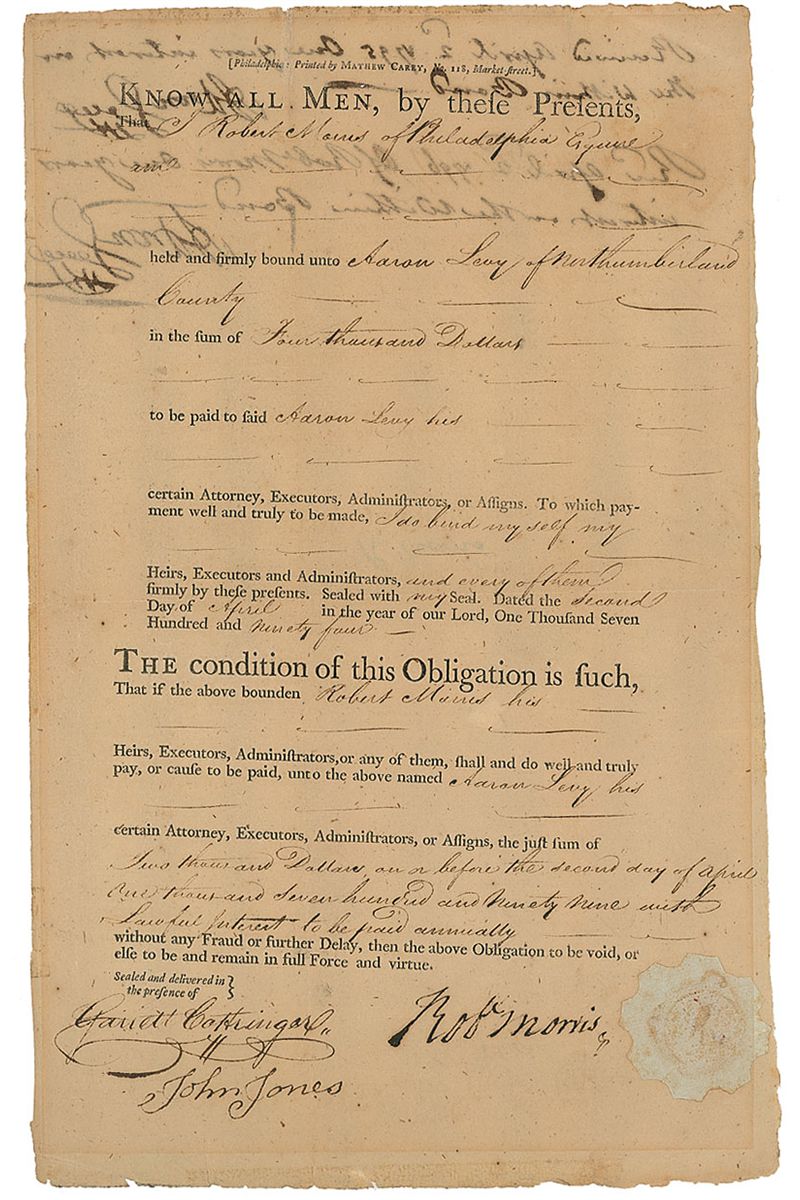 [Philadelphia: Printed by MATHEW CAREY, No. 118, Market-ſtreet.]
KNOW ALL MEN, by theſe Preſents,
That I Robert Morris of Philadelphia Esquire
am
held and firmly bound unto Aaron Levy of Northumberland
County
in the ſum of Four thousand Dollars
to be paid to ſaid Aaron Levy his
certain Attorney, Executors, Adminiſtrators, or Aſſigns. To which pay-
ment well and truly to be made, I do bind my self my
Heirs, Executors and Adminiſtrators, and every of them
firmly by theſe preſents. Sealed with my Seal. Dated the second
Day of April in the year of our Lord, One Thouſand Seven
Hundred and ninety four
THE condition of this Obligation is ſuch,
That if the above bounden Robert Morris his
Heirs, Executors, Adminiſtrators, or any of them, ſhall and do well and truly
pay, or cauſe to be paid, unto the above named Aaron Levy his
certain Attorney, Executors, Adminiſtrators, or Aſſigns, the juſt ſum of
Two thousand Dollars, on or before the second day of April
One thousand seven hundred and Ninety nine with
Lawful Interest to be paid annually
without any Fraud or further Delay, then the above Obligation to be void, or
elſe to be and remain in full Force and virtue.
Sealed and delivered in
the preſence of
Garrett Cottringer
Robt Morris
John Jones